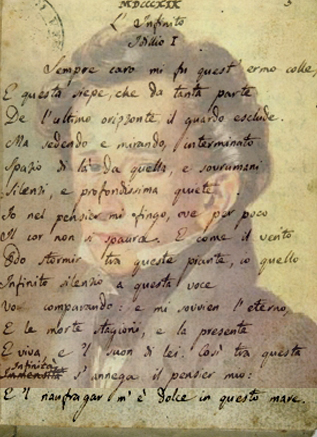 MDCCCXIX 5
L' Infinito
Idillio I
Sempre caro mi fu quest' ermo colle,
E questa siepe, che da tanta parte
De l'ultimo orizzonte, il guardo esclude.
Ma sedendo e mirando, interminato
Spazio di là da quella, e sovrumani
Silenzi, e profondissima quiete
Io nel pensier mi fingo, ove per poco
Il cor non si spaura. E come il vento
Odo stormir tra queste piante, io quello
Infinito silenzio a questa voce
Vo comparando: e mi sovvien l'eterno,
E le morte stagioni, e la presente
E viva, e 'l suon di lei. Così tra questa
Infinità
Immensità s'annega il pensier mio:
E 'l naufragar m'è dolce in questo mare.